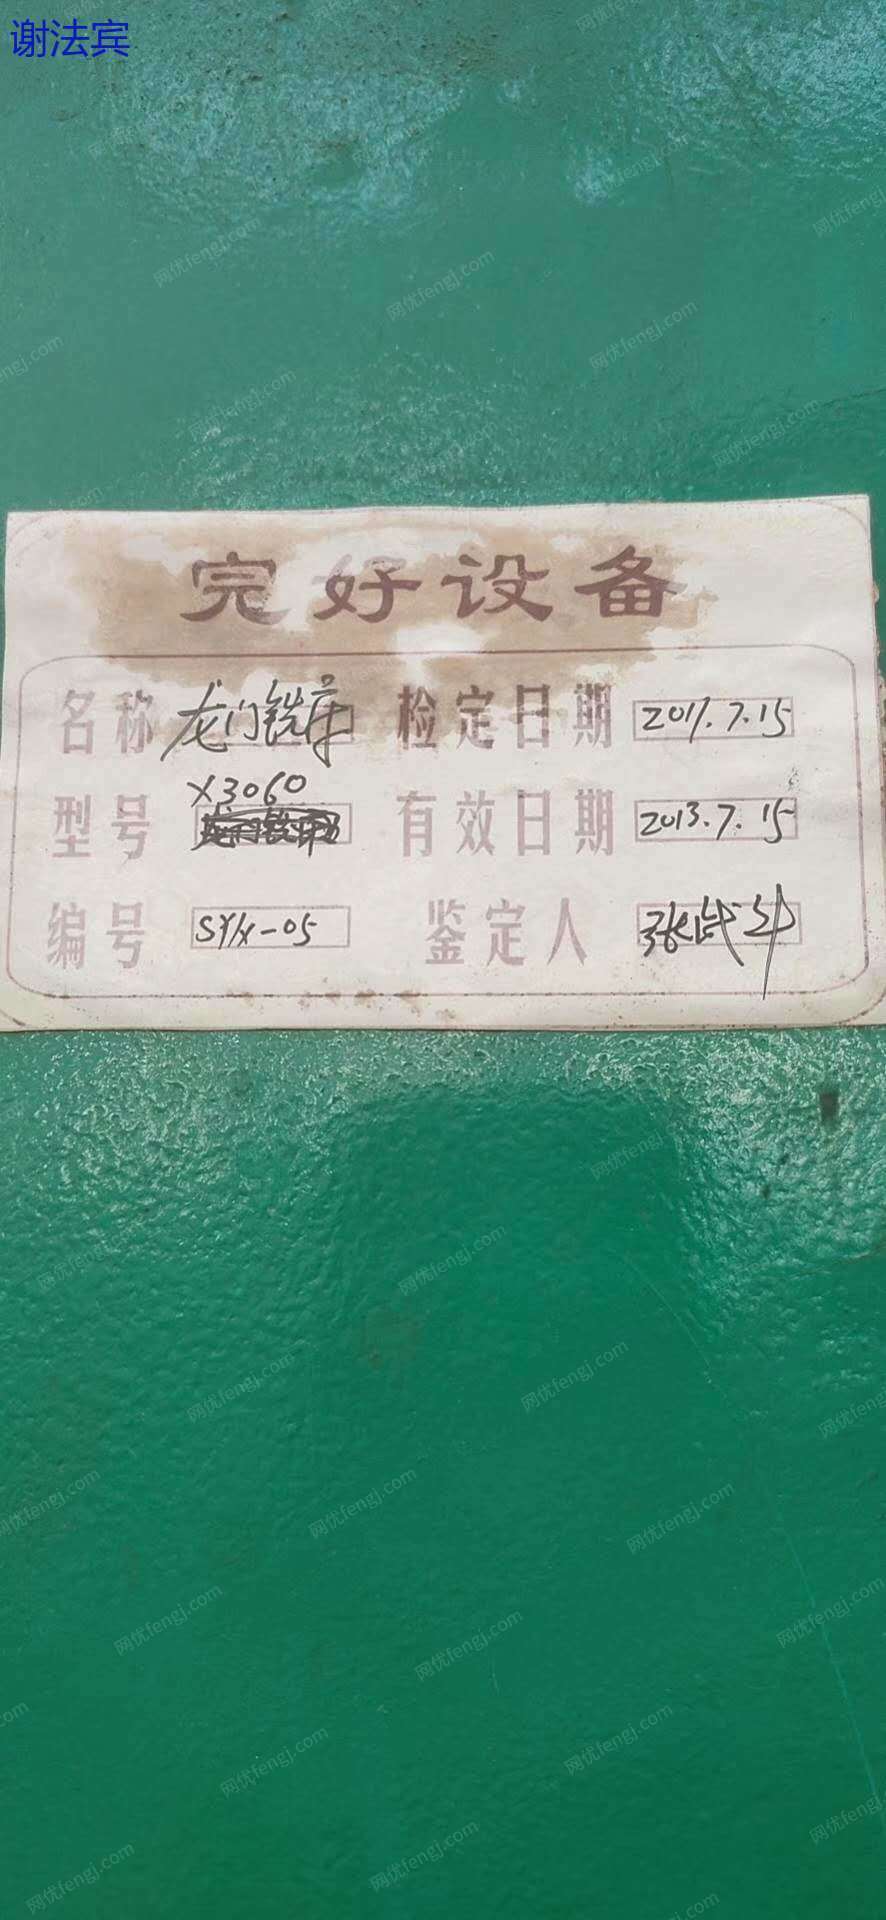 谢法宾
完好设备
名称 龙门铣床 检定日期 2011.7.15
型号 X3060 有效日期 2013.7.15
编号 SYX-05 鉴定人 张
网优fengj.com